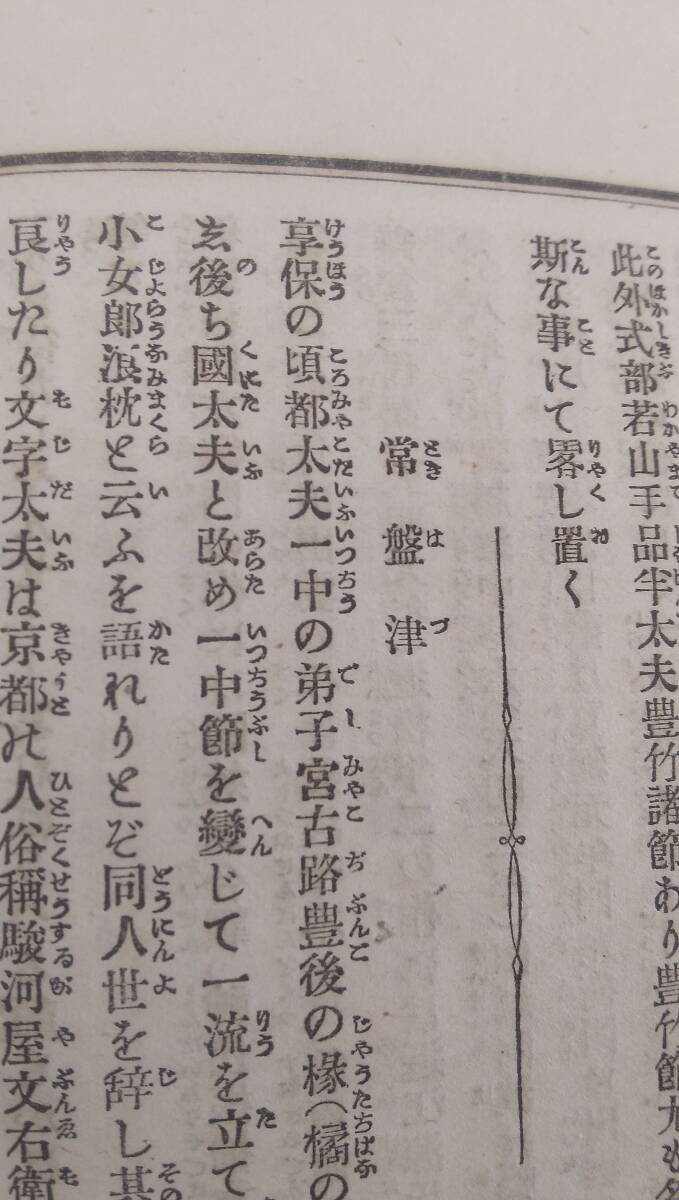 此外式部若山手品半太夫豊竹諸節あり豊竹節尤も
斯な事にて畧し置く
常盤津
享保の頃都太夫一中の弟子宮古路豊後の掾(橘の
ゑ後ち國太夫と改め一中節を變じて一流を立て
小女郎浪枕と云ふを語れりとぞ同人世を辞し其
良したり文字太夫は京都の人俗稱駿河屋文右衛